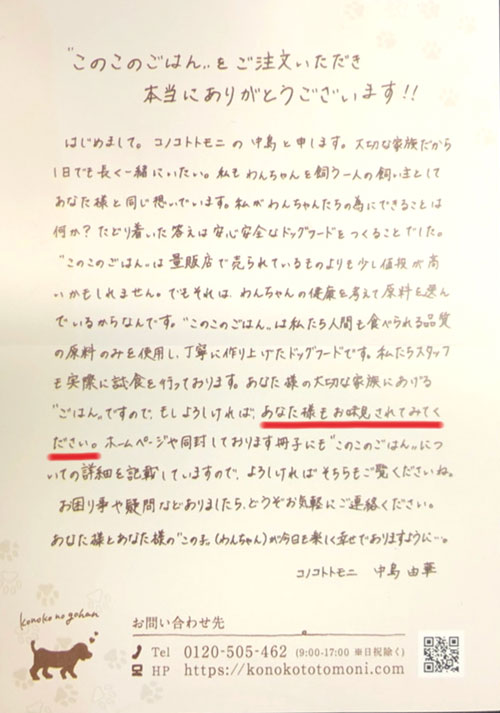 "このこのごはん"をご注文いただき
本当にありがとうございます!!
はじめまして。コノコトトモニの中島と申します。大切な家族だから
1日でも長く一緒にいたい。私もわんちゃんを飼う一人の飼い主として
あなた様と同じ想いでいます。私がわんちゃんたちの為にできることは
何か?たどり着いた答えは安心安全なドッグフードをつくることでした。
"このこのごはん"は量販店で売られているものよりも少し値段が高
いかもしれません。でもそれは、わんちゃんの健康を考えて原料を選ん
でいるからなんです。"このこのごはん"は私たち人間も食べられる品質
の原料のみを使用し、丁寧に作り上げたドッグフードです。私たちスタッフ
も実際に試食を行っております。あなた様の大切な家族にあげる
"ごはん"ですので、もしよろしければ、あなた様もお味見されてみてく
ださい。ホームページや同封しております冊子にも"このこのごはん"につ
いての詳細を記載していますので、よろしければそちらもご覧くださいね。
お困り事や疑問などありましたら、どうぞお気軽にご連絡ください。
あなた様とあなた様の"この子"(わんちゃん)が今日も楽しく幸せでありますように…。
コノコトトモニ 中島 由華
konokonogohan
お問い合わせ先
Tel 0120-505-462 (9:00-17:00 ※日祝除く)
HP https://konokototomoni.com